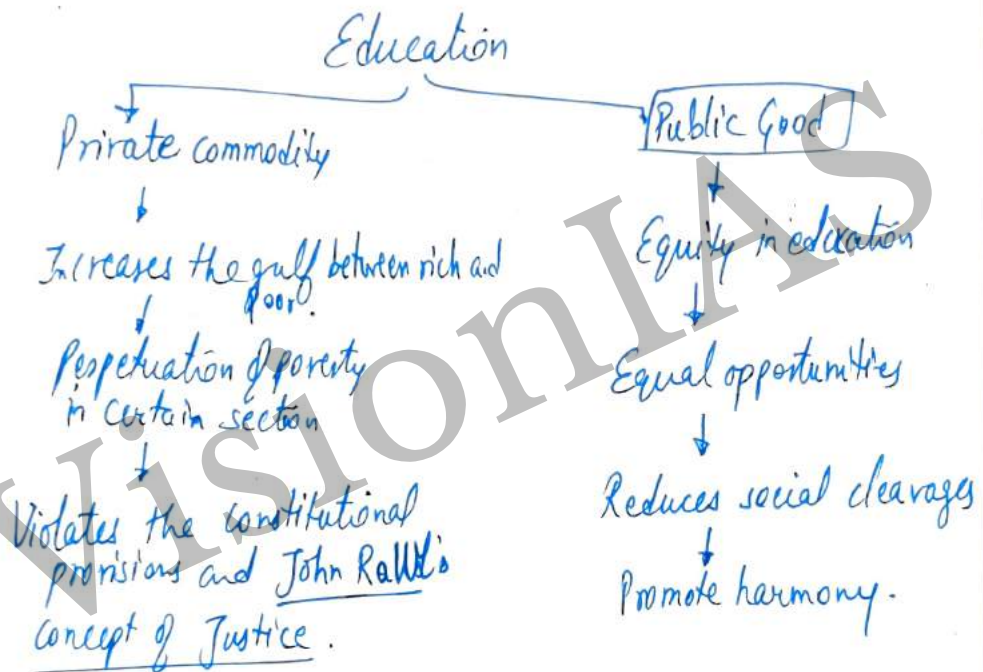 Education
Private commodity
Increases the gulf between rich and
poor.
Perpetuation of poverty
in certain section
Violates the constitutional
provisions and John Rawl's
concept of Justice.
Public Good
Equity in education
Equal opportunities
Reduces social cleavages
Promote harmony.
VisionIAS